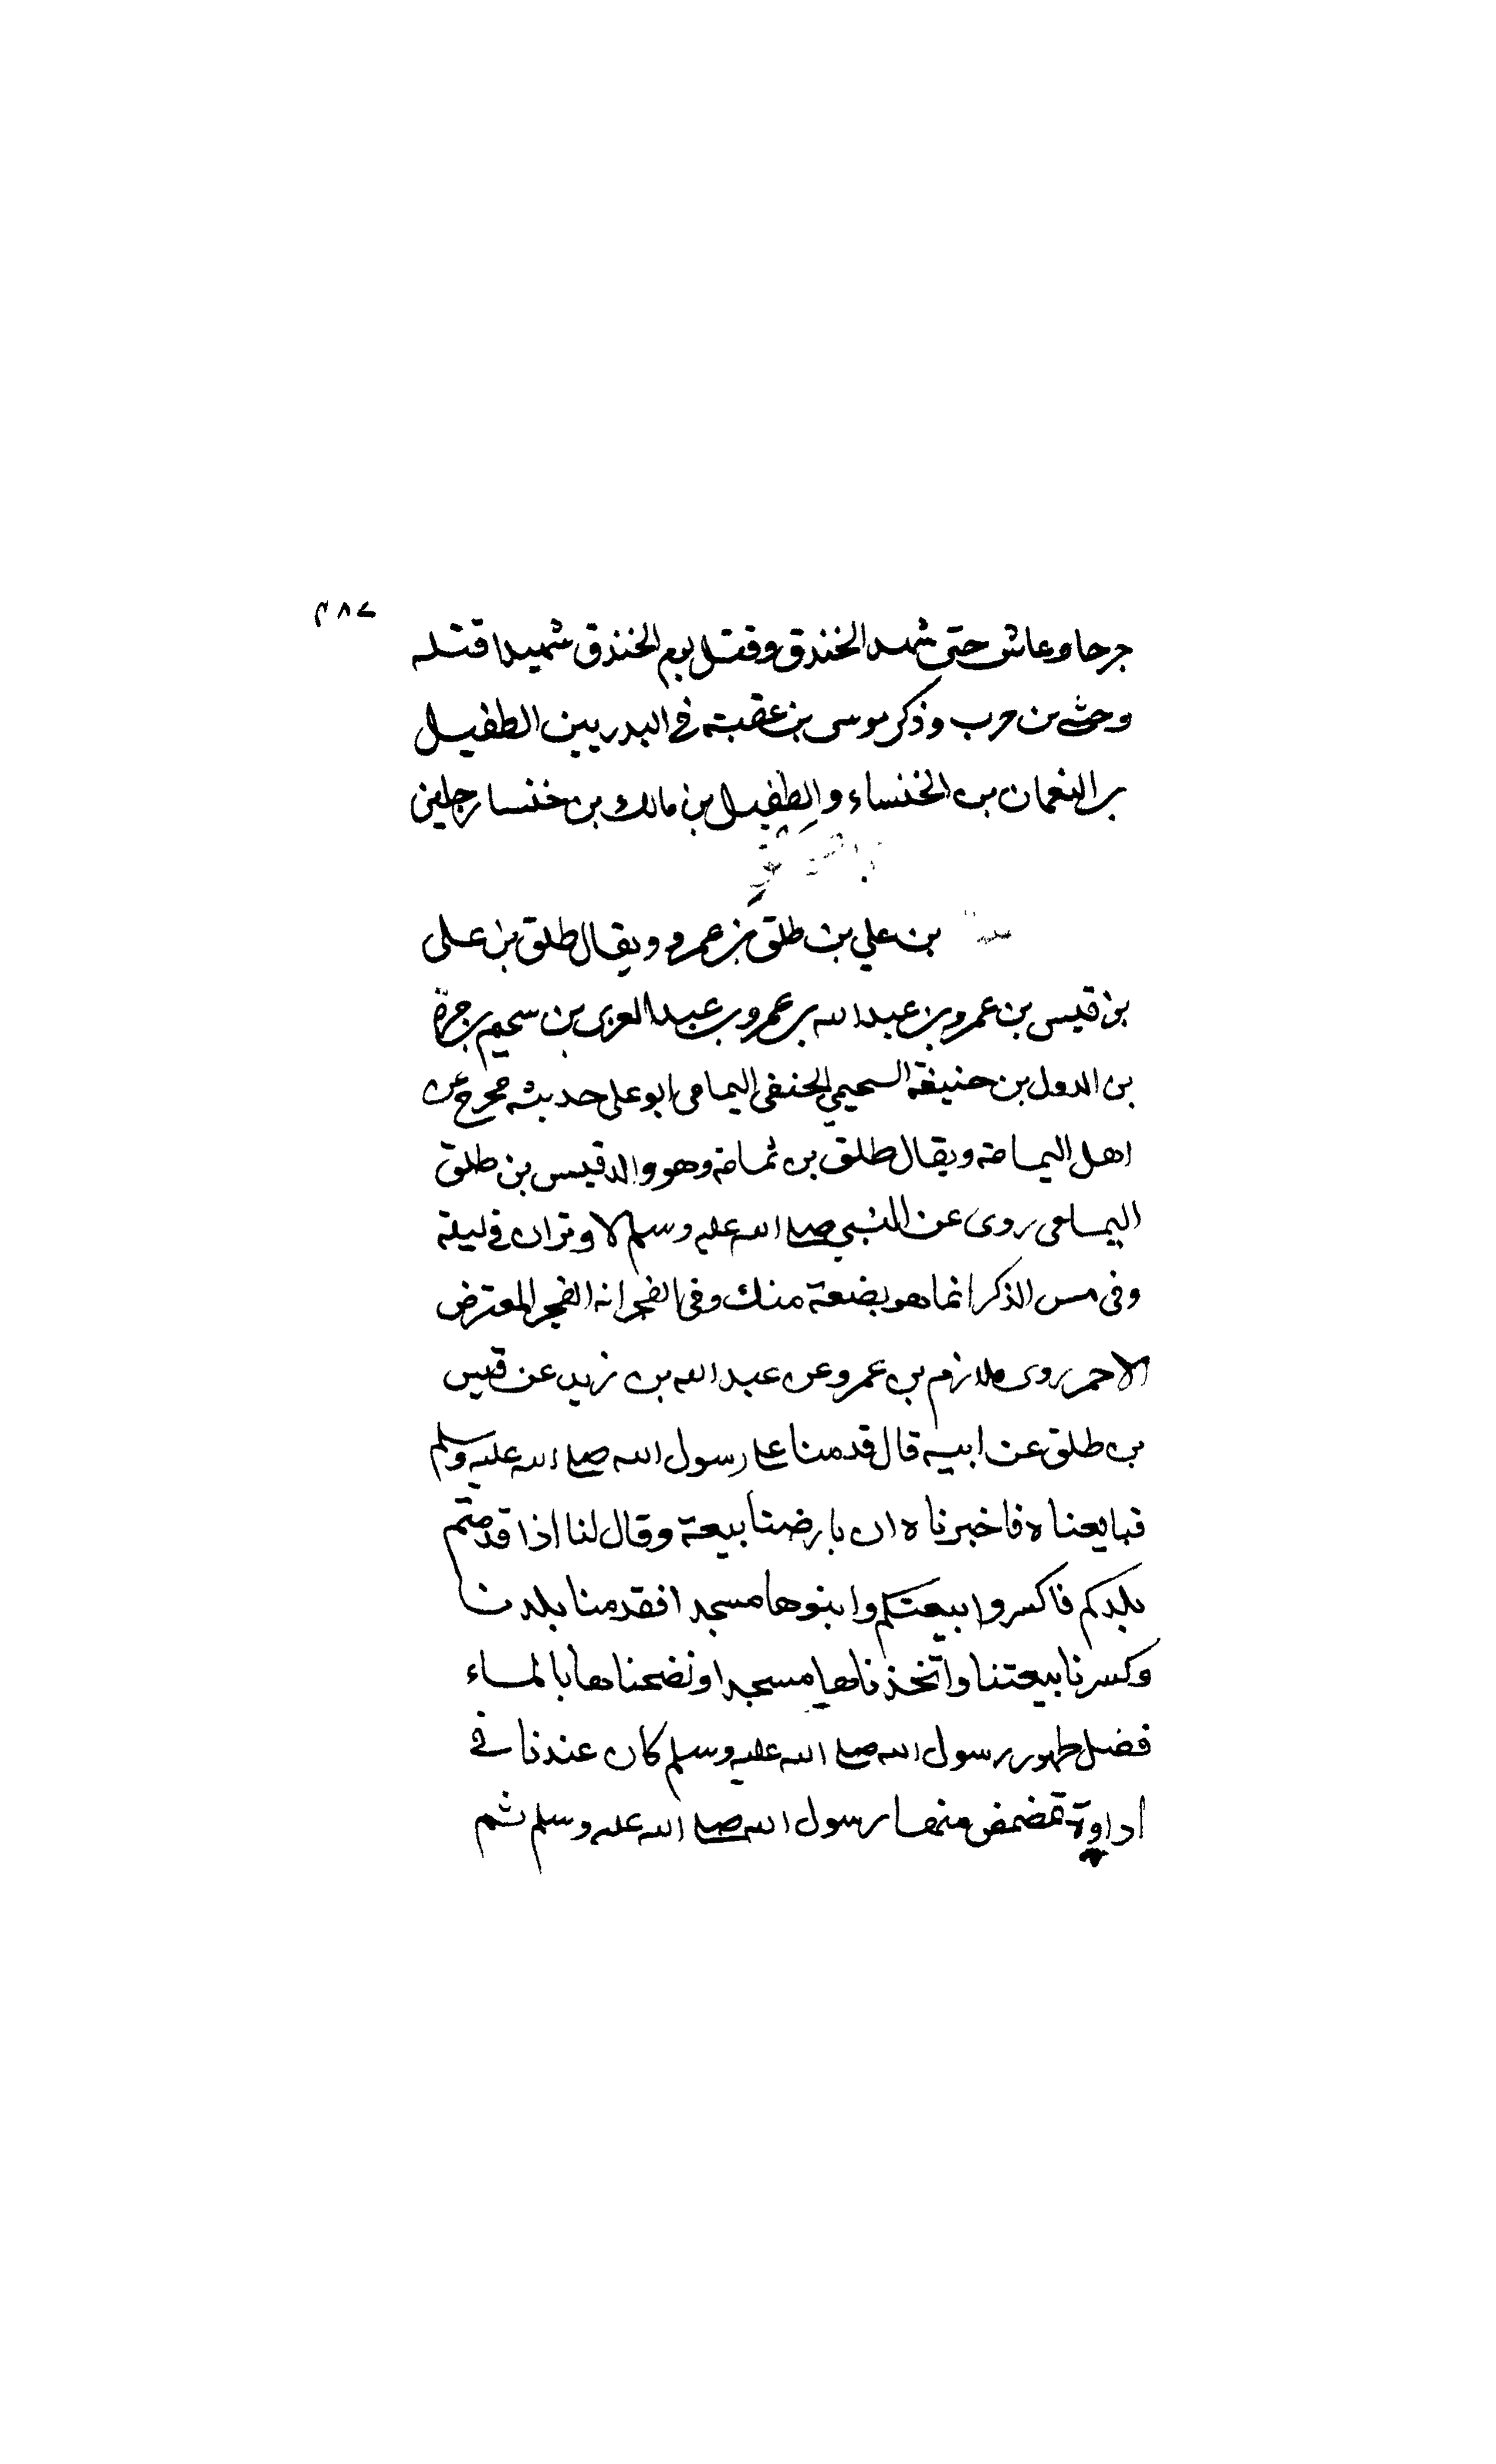 ٣٨٧
جرحا وعاش حتى شهد الخندق وقتل يوم الخندق شهيدا قتله
وحشي بن حرب وذكر موسى بن عقبة في البدريين الطفيل
بن النعمان بن الخنساء والطفيل بن مالك بن خنسا رجلين
بن علي بن طلق بن عمرو ويقال طلق بن على
بن قيس بن عمرو بن عبد الله بن عمرو بن عبد العزى بن سحيم بن مرة
بن الدول بن حنيفة السحيمي الحنفى اليمامى ابو على حديثه مخرج عن
اهل اليمامة ويقال طلق بن ثمامة وهو والد قيس بن طلق
اليمامى روى عن النبي صلى الله عليه وسلم لا وتران في ليلة
وفى مس الذكر انما هو بضعة منك وفى الفجر انه الفجر المعترض
الاحمر روى ملازم بن عمرو عن عبد الله بن زيد عن قيس
بن طلق عن ابيه قال قدمنا على رسول الله صلى الله عليه وسلم
فبايعناه فاخبرناه ان بارضنا بيعة وقال لنا اذا قدمتم
بلدكم فاكسروا بيعتكم وابنوها مسجدا فقدمنا بلدنا
وكسرنا بيعتنا واتخذناها مسجدا ونضحناها بالماء
فضل طهور رسول الله صلى الله عليه وسلم كان عندنا في
اداوة تمضمض منها رسول الله صلى الله عليه وسلم ثم